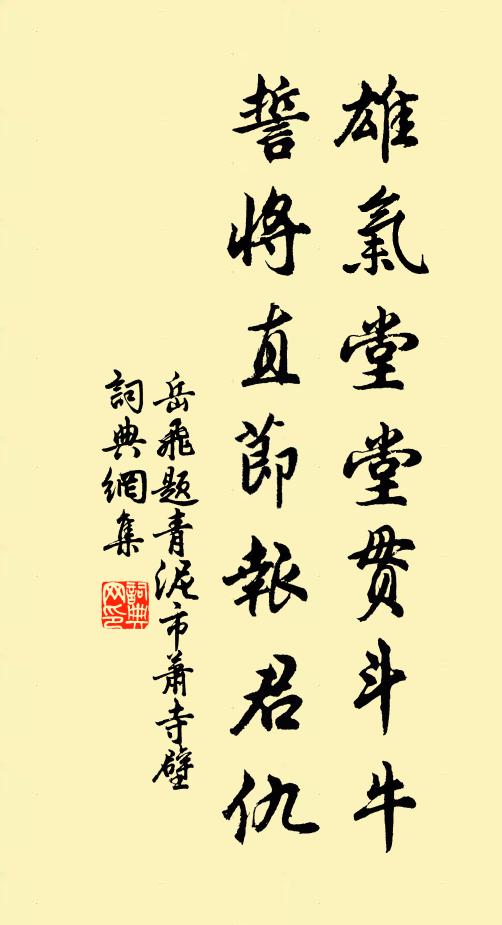 雄氣堂堂貫斗牛
誓將直節報君仇
岳飛題青泥市蕭寺壁
詞典網集
詞典
网印